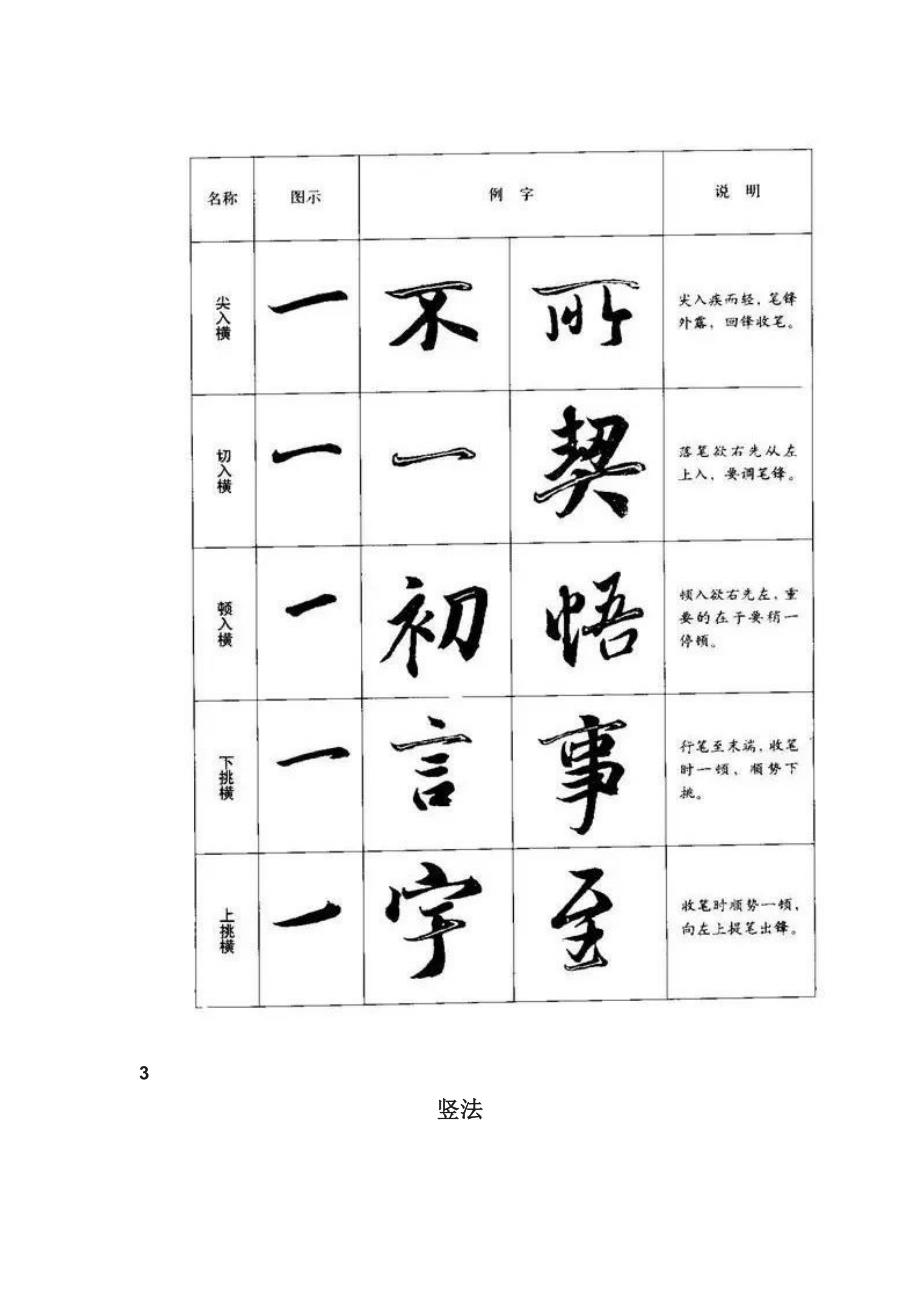 名称 图示 例 字 说 明
尖入横 一 不 所 尖入疾而轻，笔锋
外露，回锋收笔。
切入横 一 一 契 落笔欲右先从左
上入，要调笔锋。
顿入横 一 初 悟 顿入欲右先左，重
要的在于要稍一
停顿。
下挑横 一 言 事 行笔至末端，收笔
时一顿、顺势下
挑。
上挑横 一 宇 至 收笔时顺势一顿，
向左上提笔出锋。
3
竖法